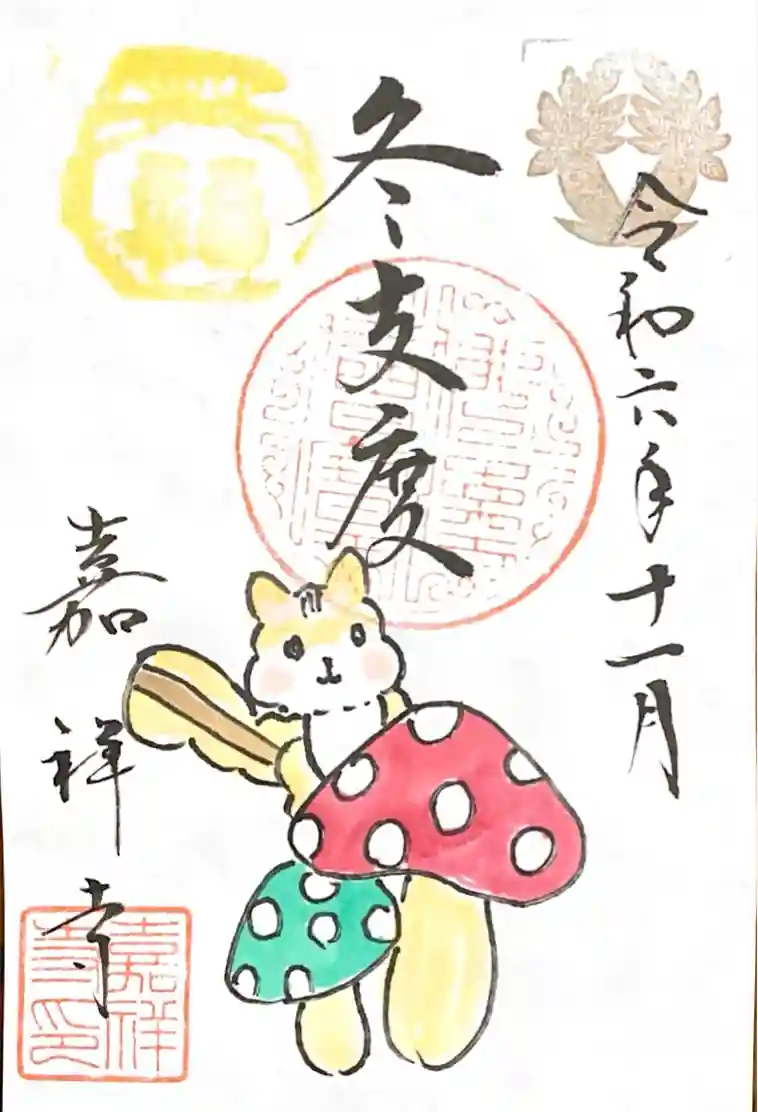 令和六年十一月
冬支度
嘉祥寺
嘉祥
寺印
福